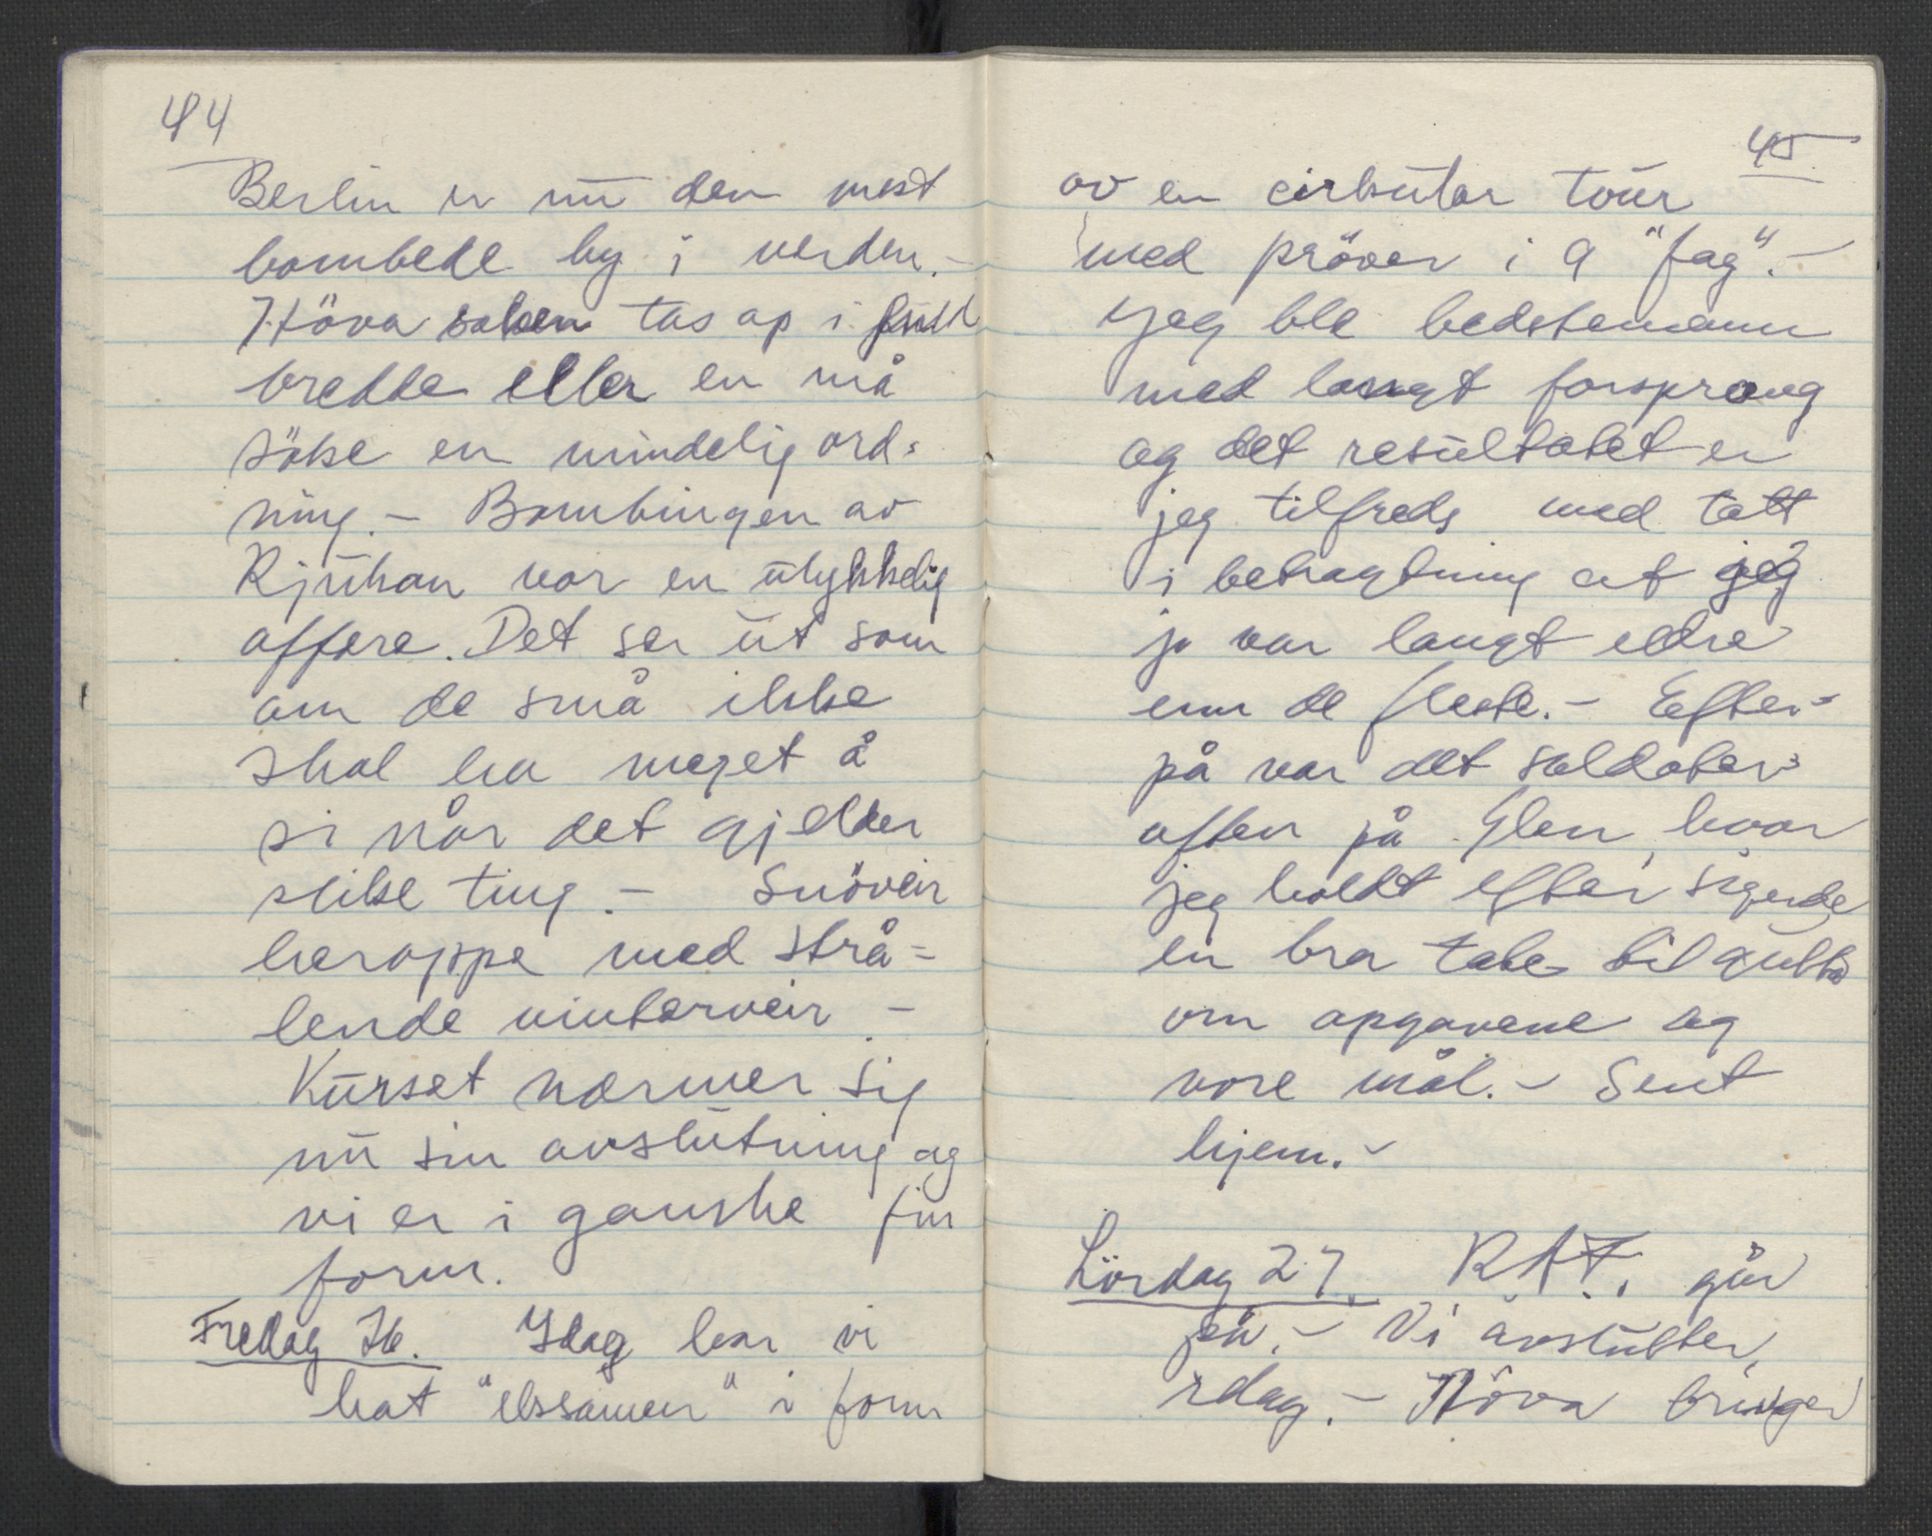 44
Berlin er nu den mest
bombede by i verden.-
Höva saken tas op i full
bredde eller en må
söke en mindelig ord-
ning. - Bombingen av
Rjukan var en ulykkelig
affære. Det ser ut som
om de små ikke
skal ha meget å
si når det gjelder
slike ting. - Snöveir
heroppe med strå-
lende vinterveir -
Kurset nærmer sig
nu sin avslutning og
vi er i ganske fin
form.
Fredag 26. Idag har vi
hat "eksamen" i form
45
av en cirkulær tour
med pröver i 9 "fag". -
Jeg ble bedstemann
med langt forsprang
og det resultatet er
jeg tilfreds med tatt
i betragtning at jeg
jo var langt eldre
enn de fleste. - Efter-
på var det soldater-
aften på Glen, hvor
jeg holdt efter sigende
en bra tale til gutta
om opgavene og
vore mål. - Sent
hjem. -
Lördag 27. RAF. går
på. - Vi avslutter
idag. - Höva bringer